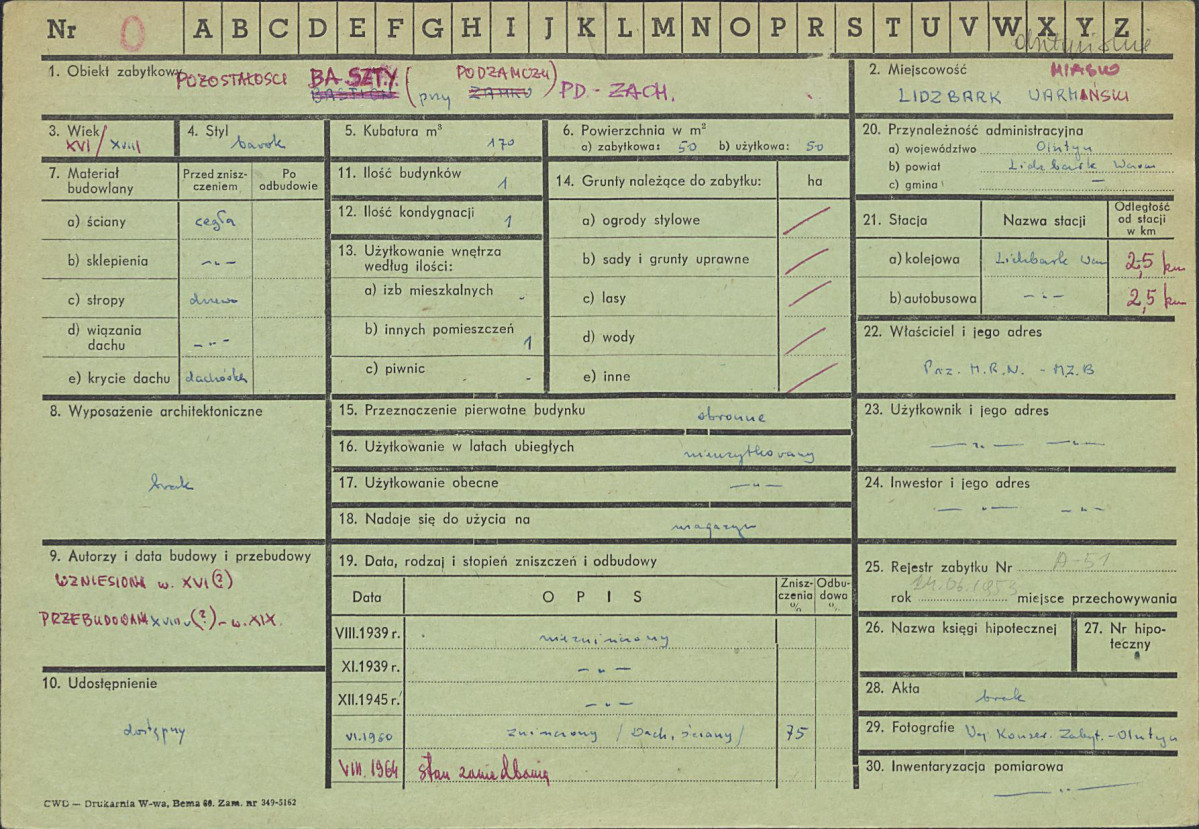 Nr 0 A B C D E F G H I J K L M N O P R S T U V W X Y Z
olsztyńskie
1. Obiekt zabytkowy POZOSTAŁOŚCI BASZTY (przy PODZAMCZU) PD.-ZACH.
BASTION ZAMKU
2. Miejscowość MIASTO
LIDZBARK WARMIŃSKI
3. Wiek XVI/XVIII
4. Styl barok
5. Kubatura m³ 170
6. Powierzchnia w m²
a) zabytkowa: 50 b) użytkowa: 50
7. Materiał budowlany
Przed zniszczeniem
Po odbudowie
a) ściany cegła
b) sklepienia —„—
c) stropy drewno
d) wiązania dachu —„—
e) krycie dachu dachówka
8. Wyposażenie architektoniczne
brak
9. Autorzy i data budowy i przebudowy
WZNIESIONA w. XVI(?)
PRZEBUDOWANA XVIII w(?) – w. XIX.
10. Udostępnienie
dostępny
11. Ilość budynków 1
12. Ilość kondygnacji 1
13. Użytkowanie wnętrza według ilości:
a) izb mieszkalnych -
b) innych pomieszczeń 1
c) piwnic -
14. Grunty należące do zabytku: ha
a) ogrody stylowe
b) sady i grunty uprawne
c) lasy
d) wody
e) inne
15. Przeznaczenie pierwotne budynku obronne
16. Użytkowanie w latach ubiegłych nieużytkowany
17. Użytkowanie obecne —„—
18. Nadaje się do użycia na magazyn
19. Data, rodzaj i stopień zniszczeń i odbudowy
Data OPIS Zniszczenia % Odbudowa %
VIII.1939 r. niezniszczony
XI.1939 r. —„—
XII.1945 r. —„—
VI.1960 zniszczony / Dach, ściany / 75
VIII.1964 stan zaniedbania
20. Przynależność administracyjna
a) województwo Olsztyn
b) powiat Lidzbark Warm
c) gmina —
21. Stacja Nazwa stacji Odległość od stacji w km
a) kolejowa Lidzbark War 2,5 km
b) autobusowa —„— 2,5 km
22. Właściciel i jego adres
Prz. M.R.N. - MZB
23. Użytkownik i jego adres
—„— —„—
24. Inwestor i jego adres
—„— —„—
25. Rejestr zabytku Nr A-51
rok 14.06.1953 miejsce przechowywania
26. Nazwa księgi hipotecznej
27. Nr hipoteczny
28. Akta brak
29. Fotografie Woj Konser. Zabyt.-Olsztyn
30. Inwentaryzacja pomiarowa
—„—
CWD — Drukarnia W-wa, Bema 60. Zam. nr 349-5162